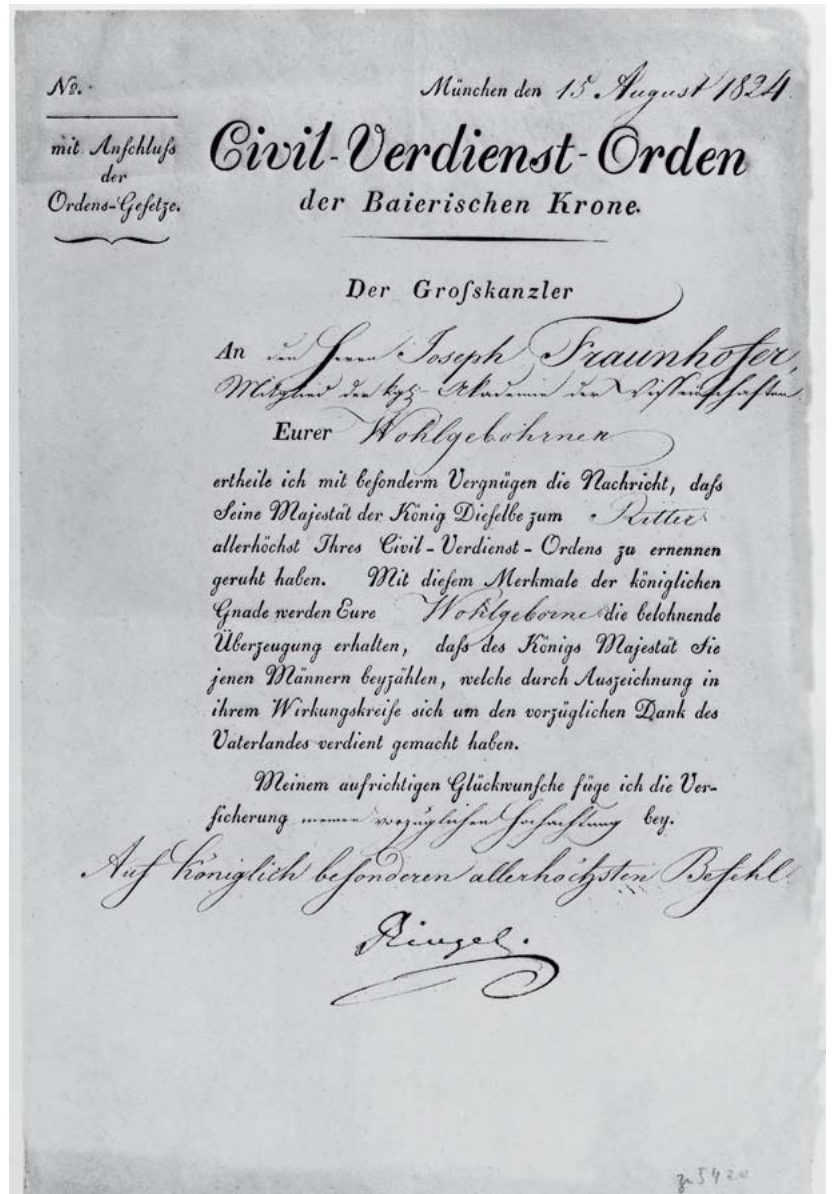 No.
München den 15 August 1824.
mit Anſchluſs
der
Ordens-Geſetze.
Civil-Verdienst-Orden
der Baierischen Krone.
Der Groſskanzler
An den Herrn Joseph Fraunhofer,
Mitglied der kgl. Akademie der Wissenschaften
Eurer Wohlgebohrnen
ertheile ich mit beſonderm Vergnügen die Nachricht, daſs
Seine Majestät der König Dieſelbe zum Ritter
allerhöchst Ihres Civil-Verdienst-Ordens zu ernennen
geruht haben. Mit dieſem Merkmale der königlichen
Gnade werden Eure Wohlgeborne die belohnende
Überzeugung erhalten, daſs des Königs Majestät Sie
jenen Männern beyzählen, welche durch Auszeichnung in
ihrem Wirkungskreiſe sich um den vorzüglichen Dank des
Vaterlandes verdient gemacht haben.
Meinem aufrichtigen Glückwunſche füge ich die Ver-
ſicherung meiner vorzüglichen Hochachtung bey.
Auf Königlich beſonderen allerhöchsten Befehl
Ringel.